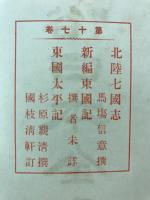 第十七卷
北陸七國志
馬場信意撰
新編東國記
撰者未詳
東國太平記
杉原親清撰
國枝清軒訂